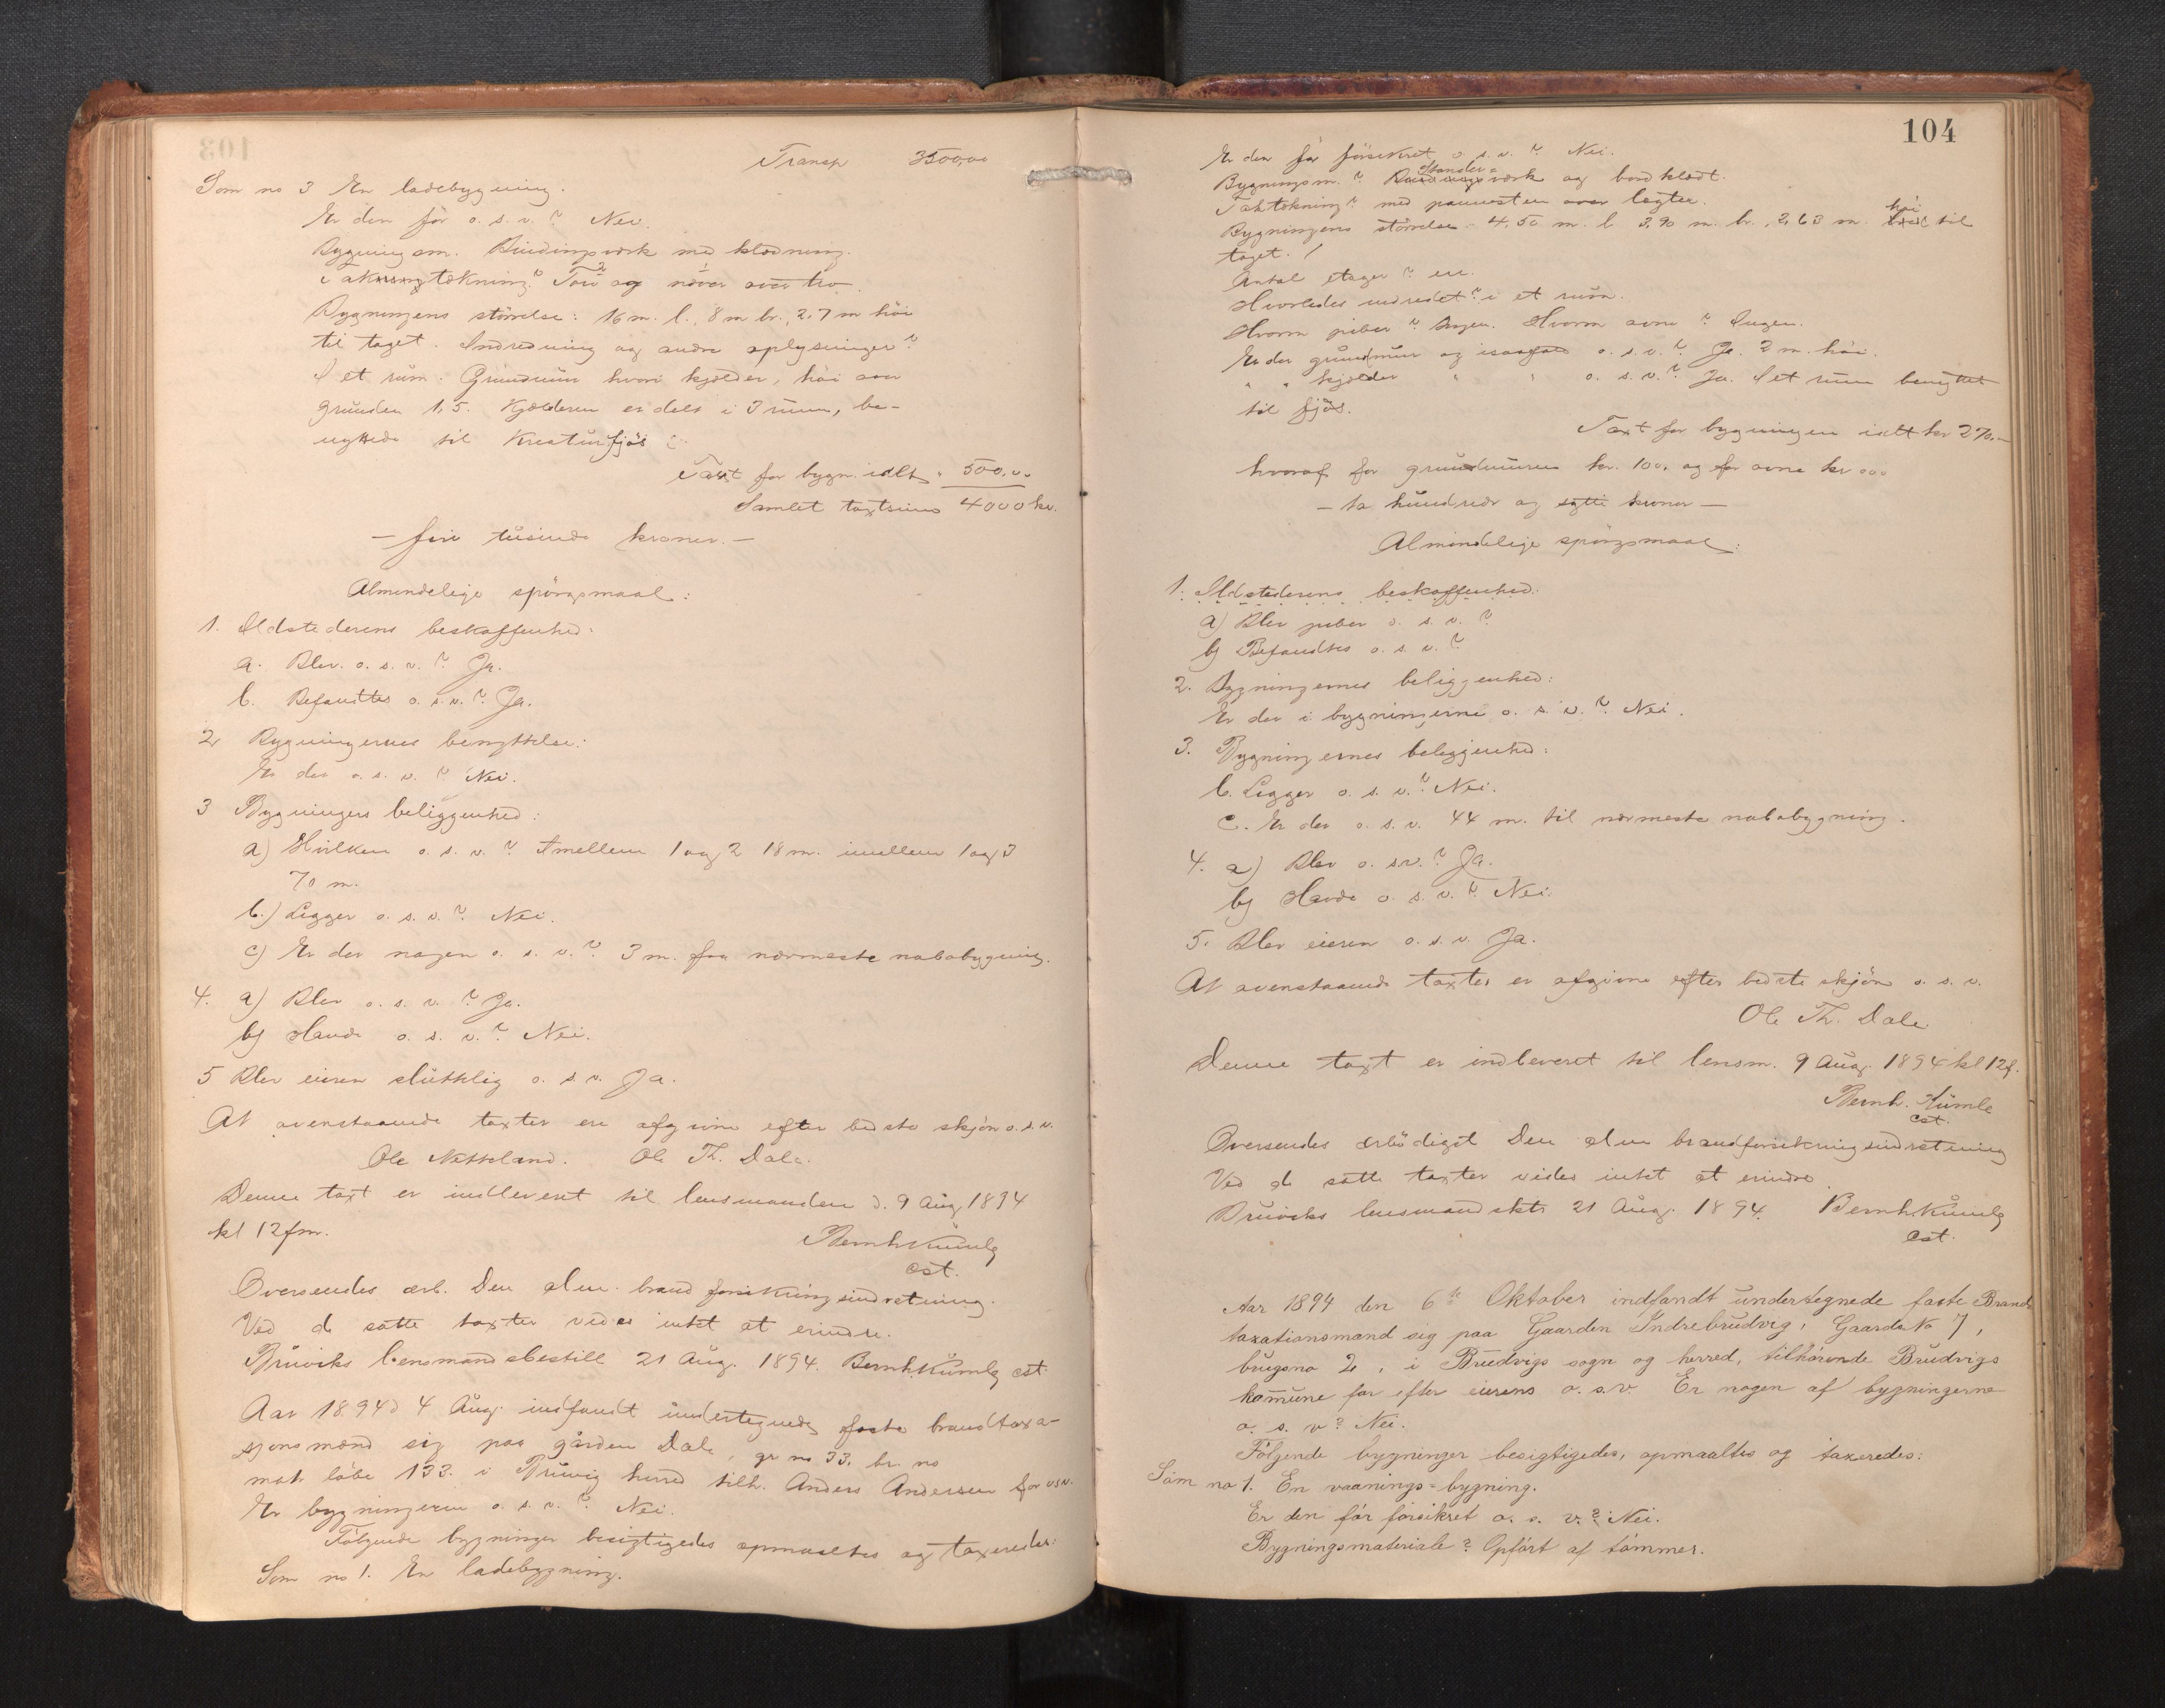 Transp 3500,00
Som no 3 En ladebygning.
Er den før o. s. v.? Nei.
Bygning am. Bindingsverk med klædning.
Taktækning? Torv og næver over tro.
Bygningens størrelse: 16 m. l., 8 m br., 2,7 m høi
til taget. Indredning og andre oplysninger?
I et rum. Grundmur hvori kjælder, høi over
grunden 1,5. Kjælderen er delt i 3 rum, be-
nyttede til Kreaturfjøs
Taxt for bygn. idlt " 500,00
Samlet taxtsum 4000 kr.
— fire tusinde kroner. —
Almendelige spörgsmaal:
1. Ildstederens beskaffenhed:
a. Blev. o. s. v.? Ja.
b. Befandtes o. s. v.? Ja.
2 Bygningernes benyttelse:
Er der o. s. v.? Nei.
3 Bygningers beliggenhed:
a) Hvilken o. s. v.? Imellem 1 og 2 18 m. imellem 1 og 3
70 m.
b.) Ligger o. s. v.? Nei.
c) Er der nogen o. s. v.? 3 m. fra nærmeste nabobygning.
4. a) Blev o. s. v.? Ja.
b) Havde o. s. v.? Nei.
5 Blev eieren sluttelig o. s. v. Ja.
At ovenstaaende taxter ere afgivne efter bedste skjøn o. s. v.
Ole Nætteland. Ole Th. Dale.
Denne taxt er indleveret til lensmanden d. 9 Aug 1894
kl 12 fm.
Bernh Kumle
cst.
Oversendes ærb. Den alm. brandforsikringsindretning.
Ved de satte taxter vides intet at erindre.
Bruviks lensmandsbestill 21 Aug. 1894. Bernh. Kumle cst.
Aar 1894 d 4 Aug. indfandt undertegnede faste brandtaxa-
sjonsmænd sig paa gården Dale, gr no 33. br. no
matr løbe 133. i Bruvig herred tilh. Anders Andersen for o s v.
Er bygningerne o. s. v.? Nei.
Følgende bygninger besigtigedes opmaaltes og taxeredes:
Som no 1. En ladebygning.
104
Er den før forsikret o. s. v.? Nei.
Bygningsm.? Stænder= værk og bordklædt.
Taktækning? med pannesten over lægter.
Bygningens størrelse. 4,50 m. l 3,90 m. br., 2,63 m. høi til
taget.
Antal etager? en.
Hvorledes indredet? i et rum.
Hvorm piber? Ingen. Hvorm ovne? Ingen.
Er der grundmur og o. s. v.? Ja. 2 m. høi.
" " kjælder " " o. s. v.? Ja. I et rum benyttet
til fjøs.
Taxt for bygningen ialt kr 270.—
hvoraf for grundmuren kr. 100. og for ovne kr 000
— to hundrede og sytti kroner —
Almindelige spörgsmaal:
1. Ildstederens beskaffenhed:
a) Blev piber o. s. v.?
b) Befandtes o. s. v.?
2. Bygningernes beliggenhed:
Er der i bygningerne o. s. v.? Nei.
3. Bygningernes beliggenhed:
b. Ligger o. s. v.? Nei.
c. Er der o. s. v. 44 m. til nærmeste nabobygning.
4. a) Blev o. s. v.? Ja.
b) Havde o. s. v.? Nei.
5. Blev eieren o. s. v. Ja.
At ovenstaaende taxter er afgivne efter bedste skjøn o. s. v.
Ole Th. Dale.
Denne taxt er indleveret til lensm. 9 Aug. 1894 kl 12 f.
Bernh. Kumle
cst.
Oversendes ærbödigst Den alm brandforsikringsindretning
Ved de satte taxter vides intet at erindre.
Bruviks lensmandskt. 21 Aug. 1894. Bernh. Kumle
cst.
Aar 1894 den 6te Oktober indfandt undertegnede faste Brand
taxationsmænd sig paa Gaarden Indrebrudvig, Gaards No 7,
brugsno 2, i Brudvigs sogn og herred, tilhørende Brudvigs
kommune for efter eierens o. s. v. Er nogen af bygningerne
o. s. v? Nei.
Følgende bygninger besigtigedes, opmaaltes og taxeredes:
Som no 1. En vaanings=bygning.
Er den før forsikret o. s. v.? Nei.
Bygningsmateriale? Opført af tømmer.